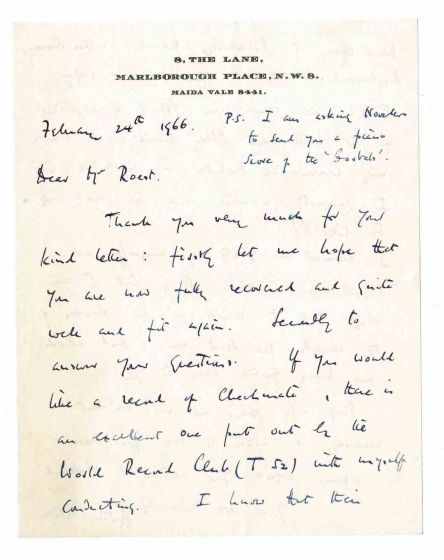 8, THE LANE,
MARLBOROUGH PLACE, N.W. 8.
MAIDA VALE 8441.
February 24th 1966.
P.S. I am asking Novellos
to send you a piano
score of the 'Gorbals'.
Dear Mr Roast.
Thank you very much for your
kind letter: firstly let me hope that
you are now fully recovered and quite
well and fit again. Secondly to
answer your questions. If you would
like a record of Checkmate, there is
an excellent one put out by the
World Record Club (T 52) with myself
conducting. I know that this